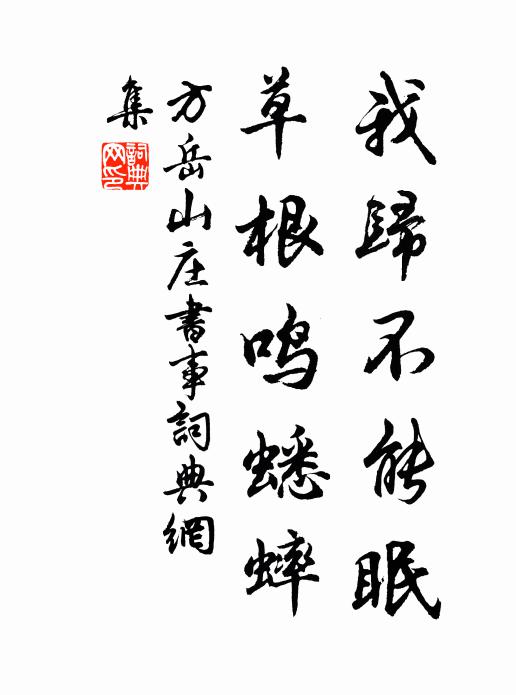 我歸不能眠
草根鳴蟋蟀
方岳山庄書事詞典網
集
詞典
网印